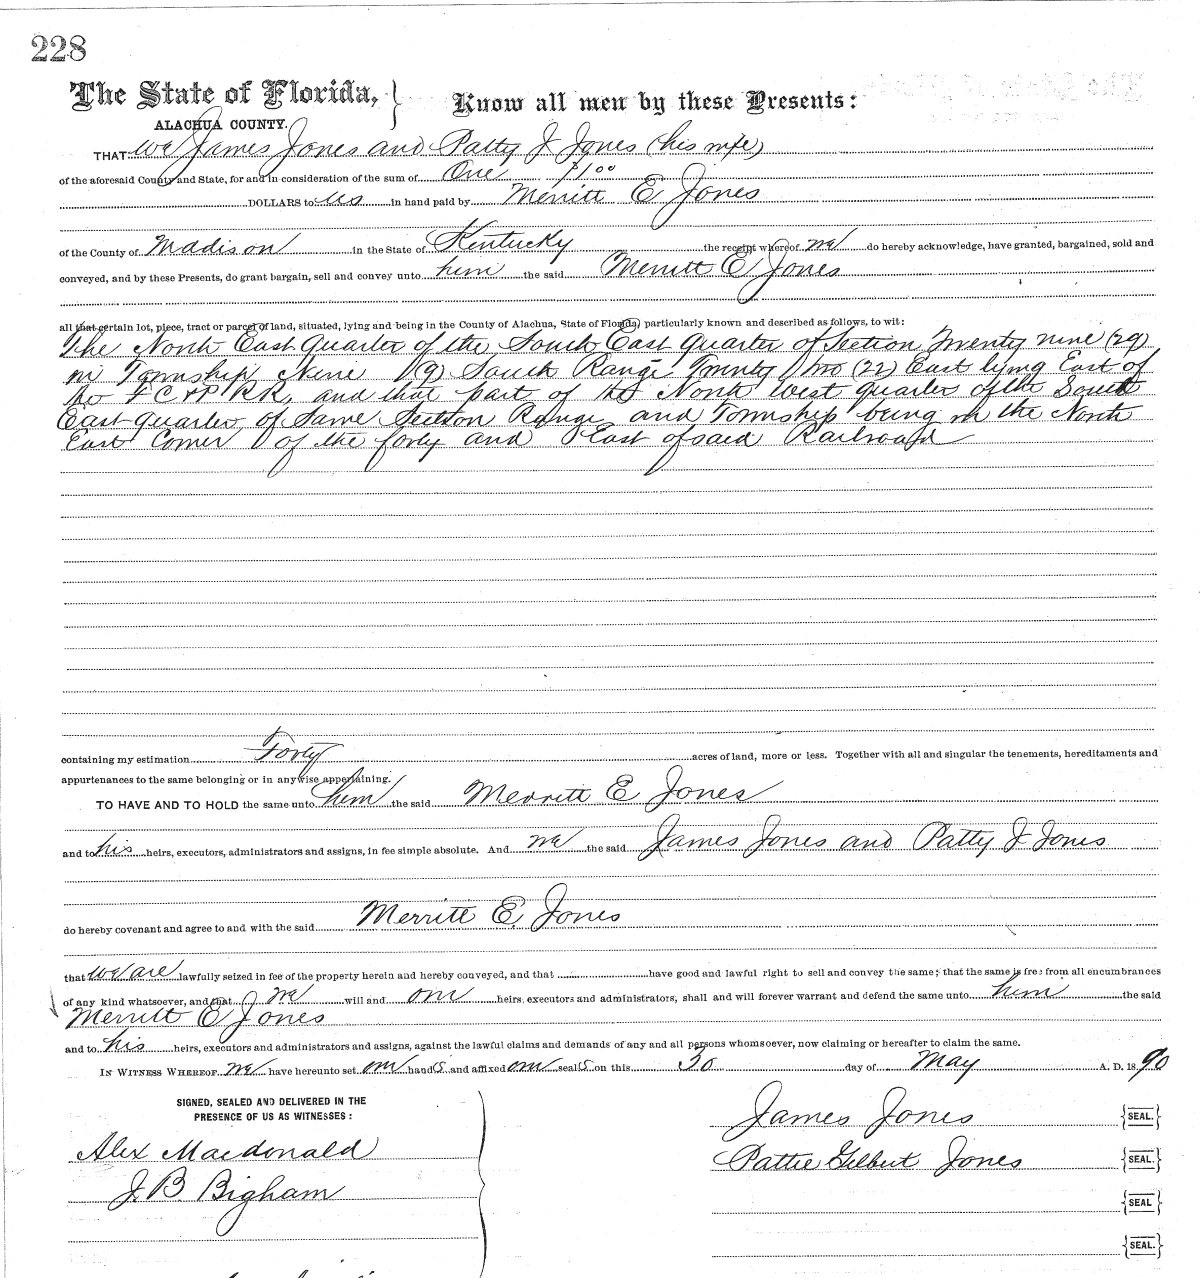 228
The State of Florida, } Know all men by these Presents:
ALACHUA COUNTY.
THAT We James Jones and Patty J Jones (his wife)
of the aforesaid County and State, for and in consideration of the sum of One $1.00
DOLLARS to us in hand paid by Merritt E Jones
of the County of Madison in the State of Kentucky the receipt whereof we do hereby acknowledge, have granted, bargained, sold and
conveyed, and by these Presents, do grant bargain, sell and convey unto him the said Merritt E Jones
all that certain lot, piece, tract or parcel of land, situated, lying and being in the County of Alachua, State of Florida, particularly known and described as follows, to wit:
The North East Quarter of the South East Quarter of Section Twenty nine (29)
in Township Nine (9) South Range Twenty Two (22) East lying East of
F C & P RR, and that part of the North West quarter of the South
East Quarter of Same Section Range and Township being in the North
East Corner of the forty and East of said Railroad
containing my estimation Forty acres of land, more or less. Together with all and singular the tenements, hereditaments and
appurtenances to the same belonging or in anywise appertaining.
TO HAVE AND TO HOLD the same unto him the said Merritt E Jones
and to his heirs, executors, administrators and assigns, in fee simple absolute. And we the said James Jones and Patty J Jones
do hereby covenant and agree to and with the said Merritt E. Jones
that we are lawfully seized in fee of the property herein and hereby conveyed, and that have good and lawful right to sell and convey the same; that the same is free from all encumbrances
of any kind whatsoever, and that we will and our heirs, executors and administrators, shall and will forever warrant and defend the same unto him the said
Merritt E Jones
and to his heirs, executors and administrators and assigns, against the lawful claims and demands of any and all persons whomsoever, now claiming or hereafter to claim the same.
IN WITNESS WHEREOF we have hereunto set our hands and affixed our seals on this 30 day of May A. D. 1890
SIGNED, SEALED AND DELIVERED IN THE
PRESENCE OF US AS WITNESSES:
James Jones {SEAL.}
Alex Macdonald
Pattie Gilbert Jones {SEAL.}
J. B. Bigham
{SEAL}
{SEAL.}